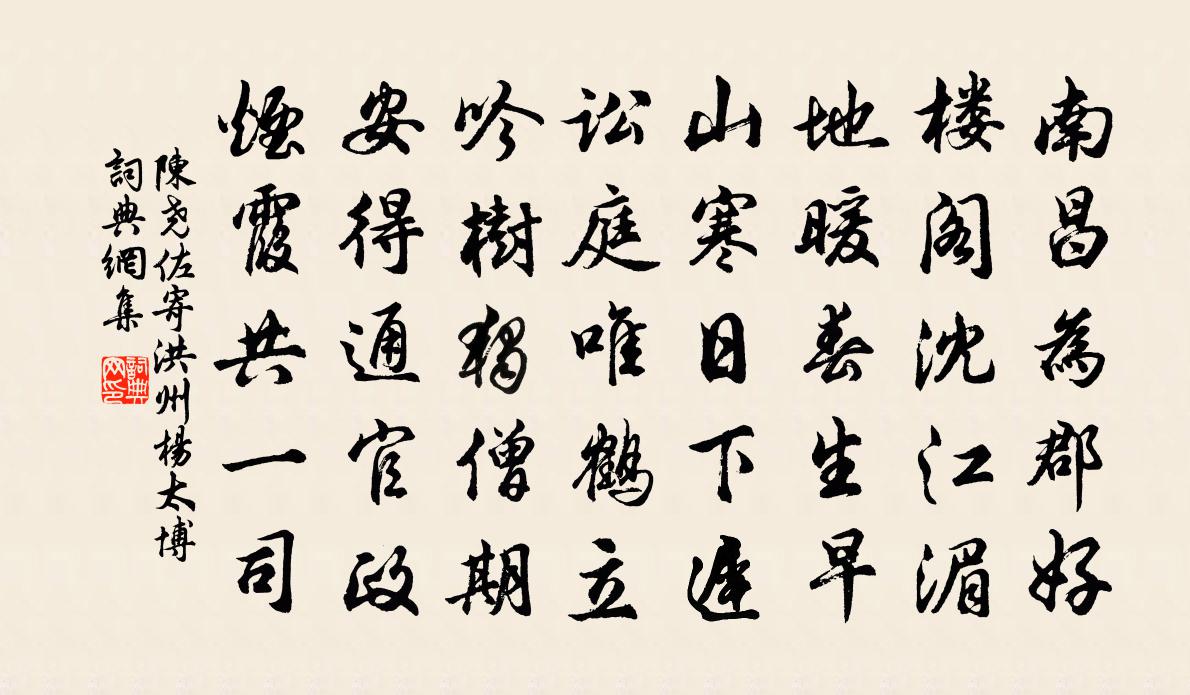 南昌為郡好
楼阁沈江湄
地暖春生早
山寒日下遲
訟庭唯鶴立
吟樹獨僧期
安得通官政
煙霞共一司
陳尧佐寄洪州楊太博
詞典網集
詞典
网印